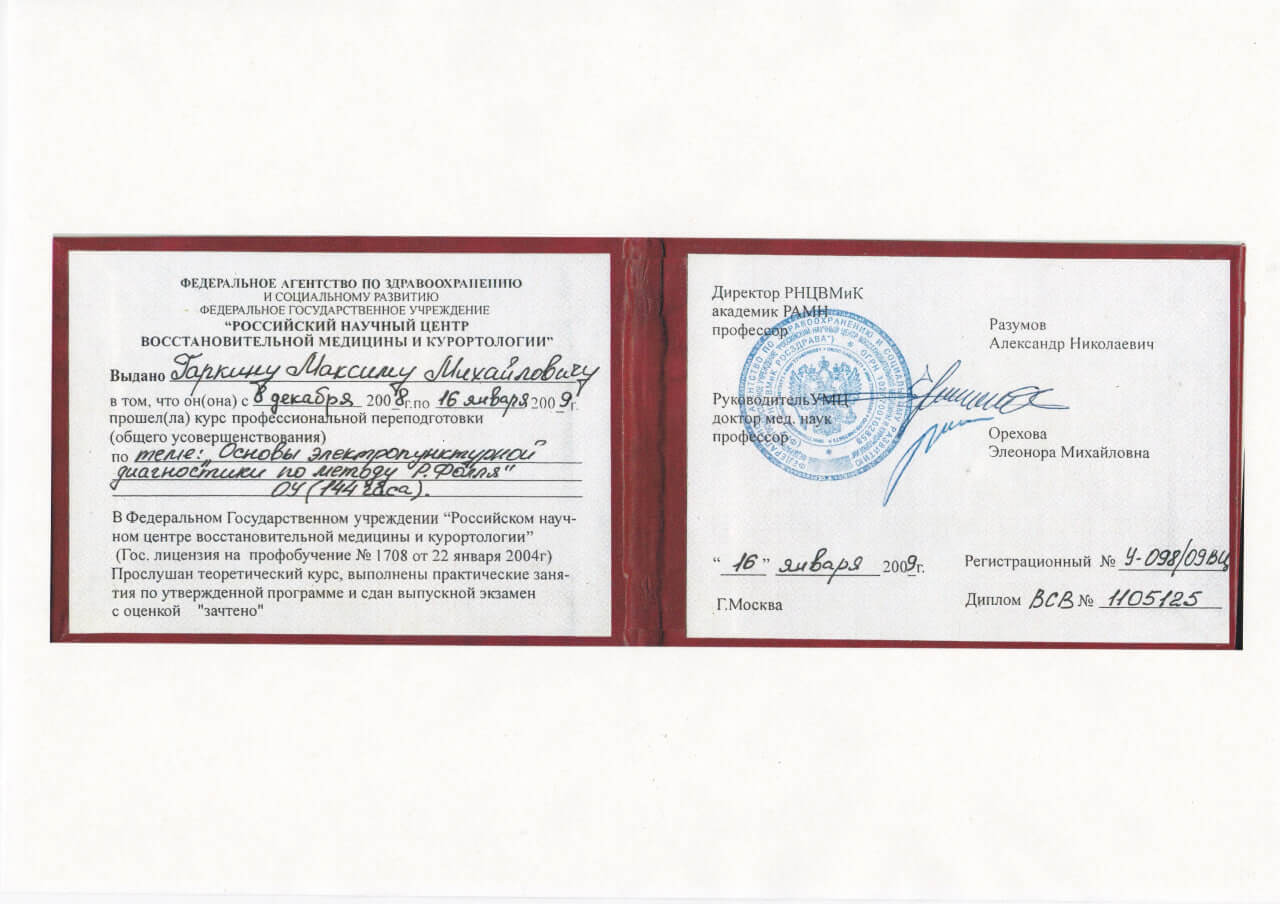 ФЕДЕРАЛЬНОЕ АГЕНТСТВО ПО ЗДРАВООХРАНЕНИЮ
И СОЦИАЛЬНОМУ РАЗВИТИЮ
ФЕДЕРАЛЬНОЕ ГОСУДАРСТВЕННОЕ УЧРЕЖДЕНИЕ
“РОССИЙСКИЙ НАУЧНЫЙ ЦЕНТР
ВОССТАНОВИТЕЛЬНОЙ МЕДИЦИНЫ И КУРОРТОЛОГИИ”
Выдано Гаркину Максиму Михайловичу
в том, что он(она) с 8 декабря 2008г. по 16 января 2009г.
прошел(ла) курс профессиональной переподготовки
(общего усовершенствования)
по теме: „Основы электропунктурной
диагностики по методу Р. Фолля"
ОУ (144 часа).
В Федеральном Государственном учреждении “Российском науч-
ном центре восстановительной медицины и курортологии”
(Гос. лицензия на профобучение № 1708 от 22 января 2004г)
Прослушан теоретический курс, выполнены практические заня-
тия по утвержденной программе и сдан выпускной экзамен
с оценкой "зачтено"
Директор РНЦВМиК
академик РАМН
профессор
Разумов
Александр Николаевич
РуководительУМЦ
доктор мед. наук
профессор
Орехова
Элеонора Михайловна
“16” января 2009г.
Регистрационный № У-098/09ВЦ
Г.Москва
Диплом ВСВ № 1105125